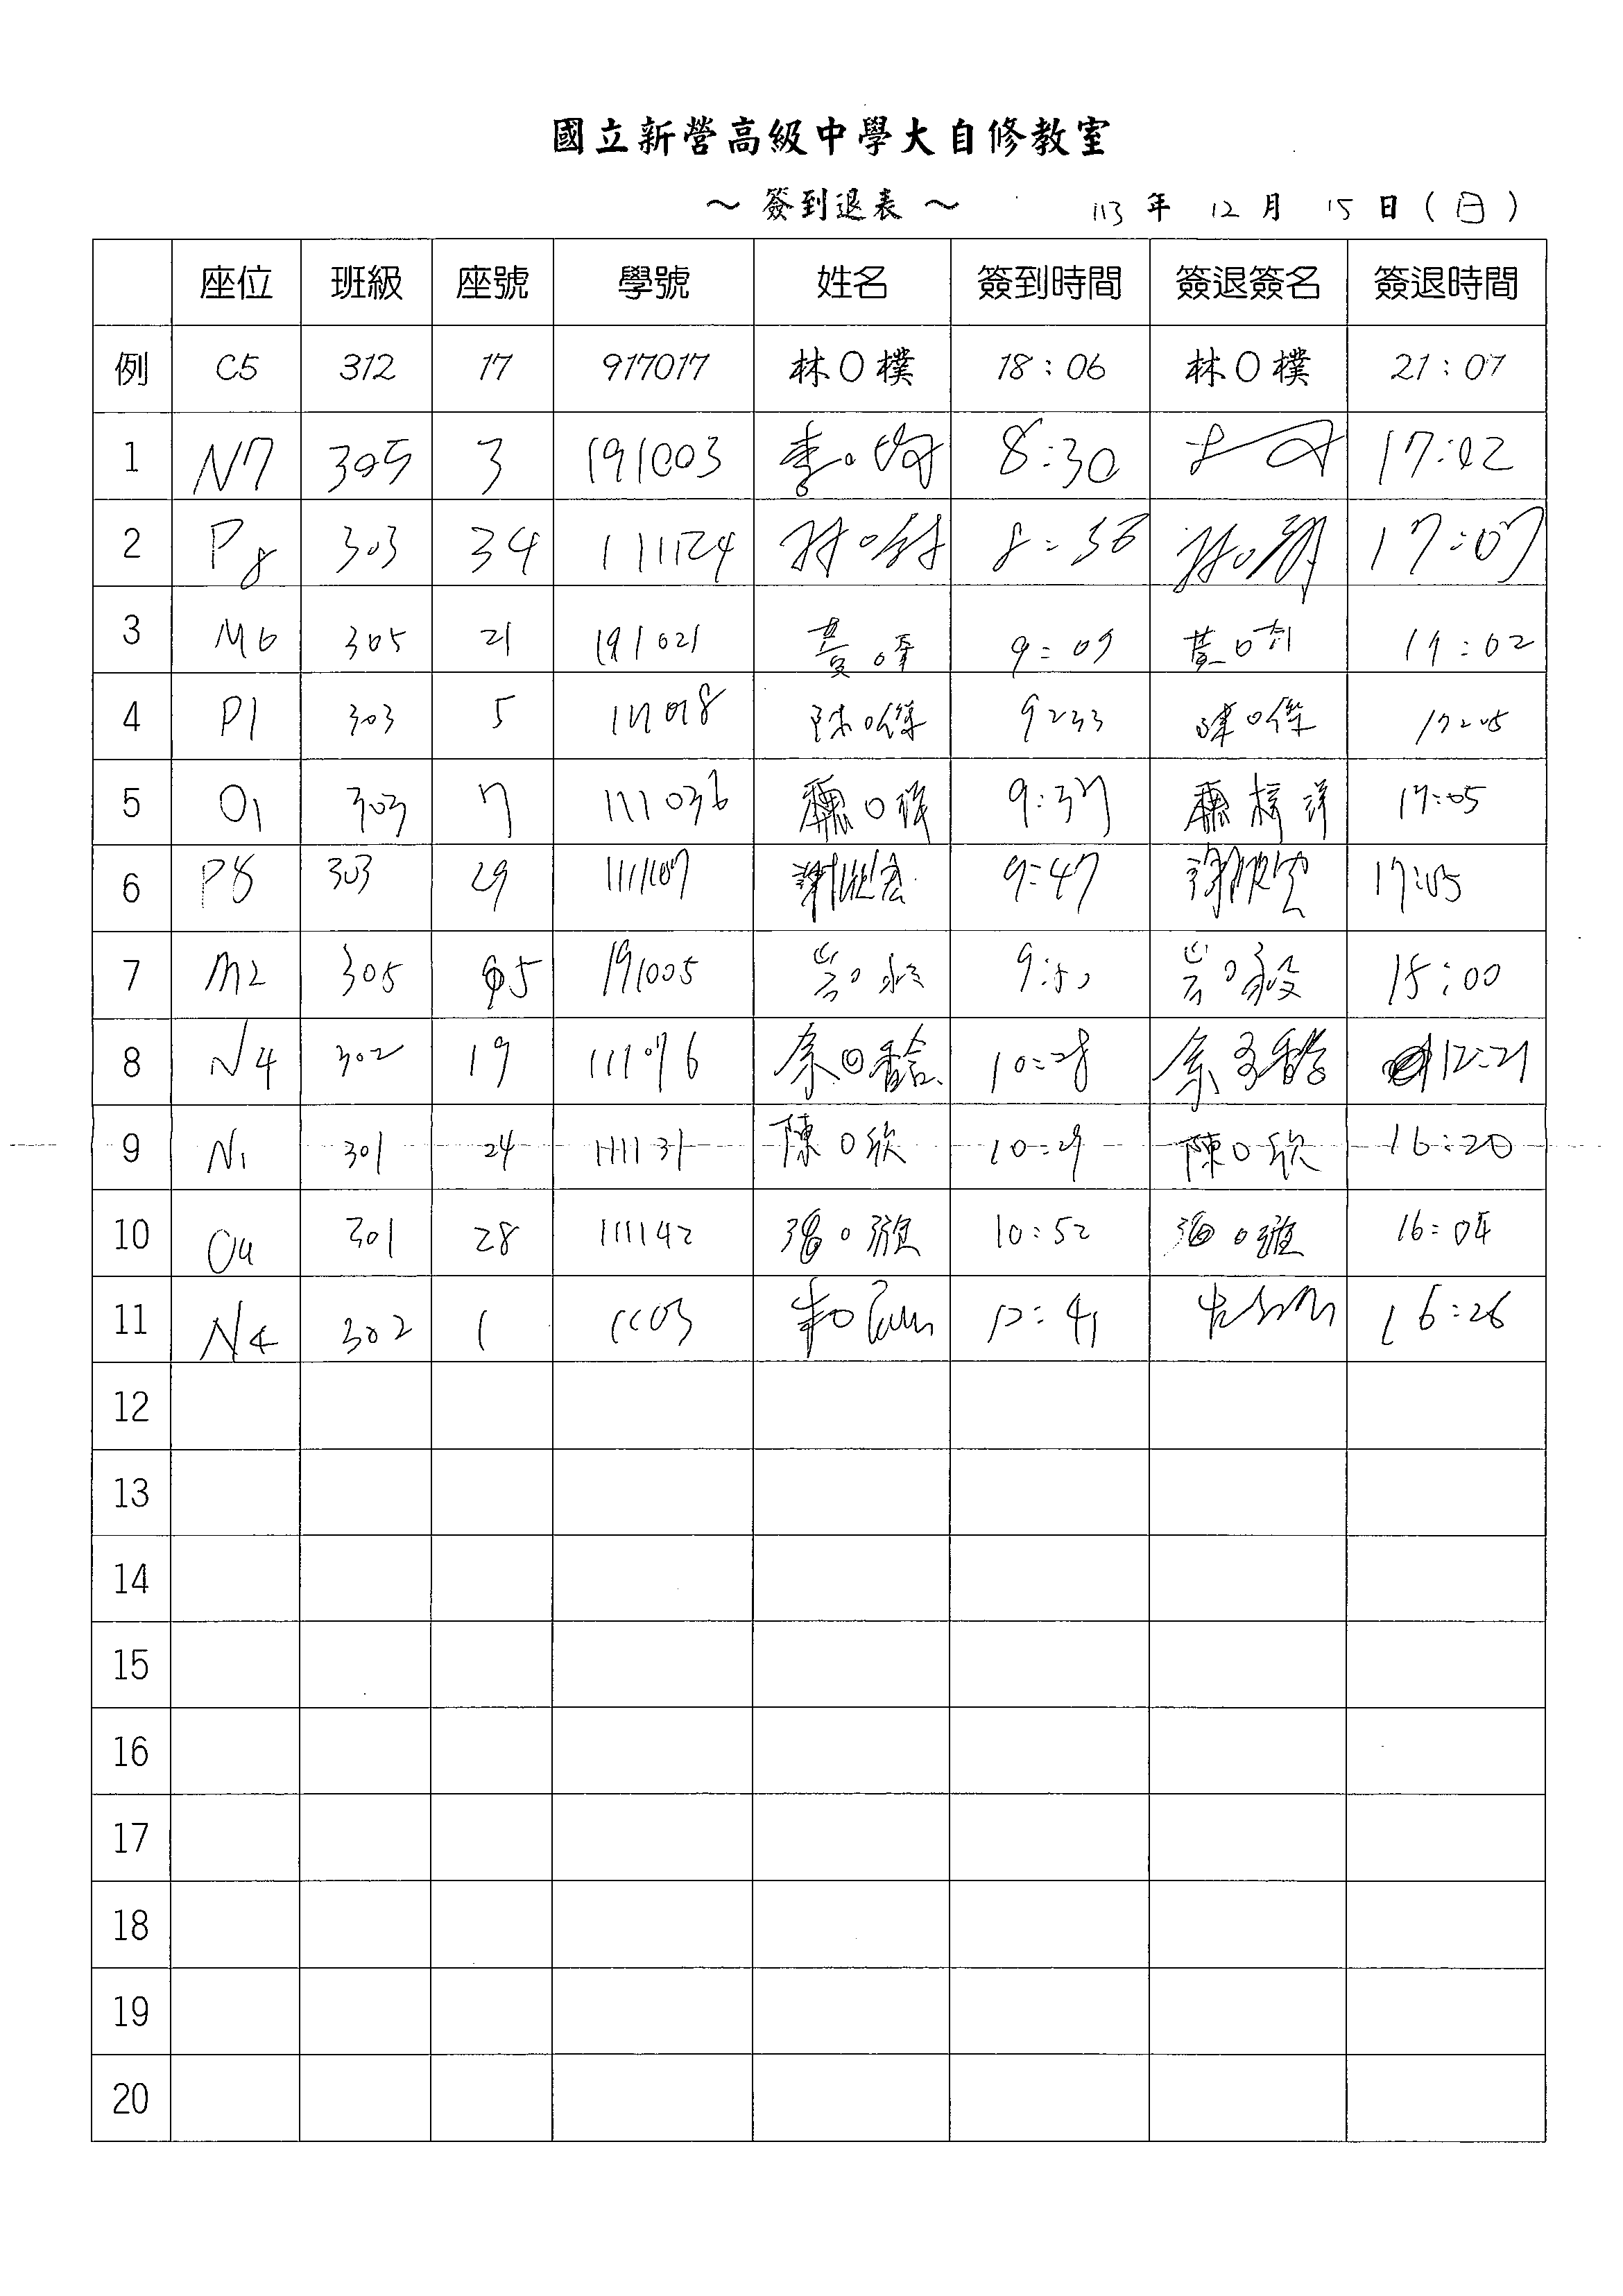 國立新營高級中學大自修教室
～ 簽到退表 ～ 113 年 12 月 15 日 ( 日 )
座位 班級 座號 學號 姓名 簽到時間 簽退簽名 簽退時間
例 C5 312 17 917017 林O樸 18:06 林O樸 21:07
1 N7 305 3 191003 李O 8:30 17:02
2 P8 303 34 111124 林O 8:36 林O 17:07
3 M6 305 21 191021 黃O 9:09 黃O 17:02
4 P1 303 5 陳O傑 9:33 陳O傑 17:05
5 O1 303 7 111036 O 9:37 17:05
6 P8 303 29 謝 9:47 謝 17:05
7 M2 305 05 191005 9:50 15:00
8 N4 302 19 111076 余O馨 10:28 余 馨 12:21
9 N1 301 24 111131 陳O欣 10:29 陳O欣 16:20
10 O4 301 28 111142 O 10:52 O 16:04
11 N4 302 1 12:41 16:26
12
13
14
15
16
17
18
19
20